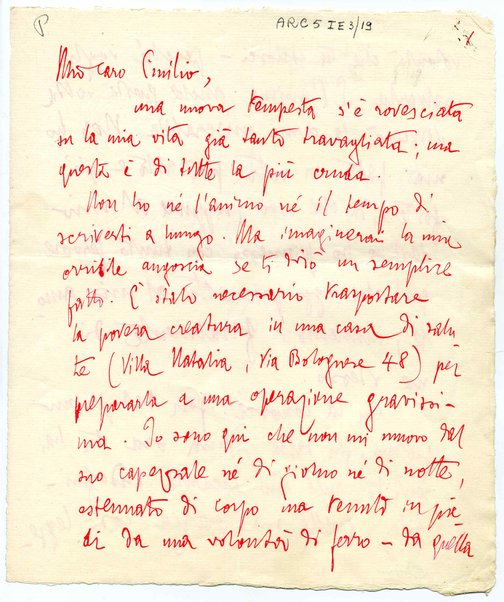 P
ARC 5 I E 3/19
Mio caro Emilio,
una nuova tempesta s'è rovesciata
su la mia vita già tanto travagliata; ma
questa è di tutte la più cruda.
Non ho né l'animo né il tempo di
scriverti a lungo. Ma imaginerai la mia
orribile angoscia se ti dirò un semplice
fatto. È stato necessario trasportare
la povera creatura in una casa di salu-
te (Villa Natalia, via Bolognese 48) per
prepararla a una operazione gravissi-
ma. Io sono qui che non mi muovo dal
suo capezzale né di giorno né di notte,
estenuato di corpo ma tenuto in pie-
di da una volontà di ferro – da quella